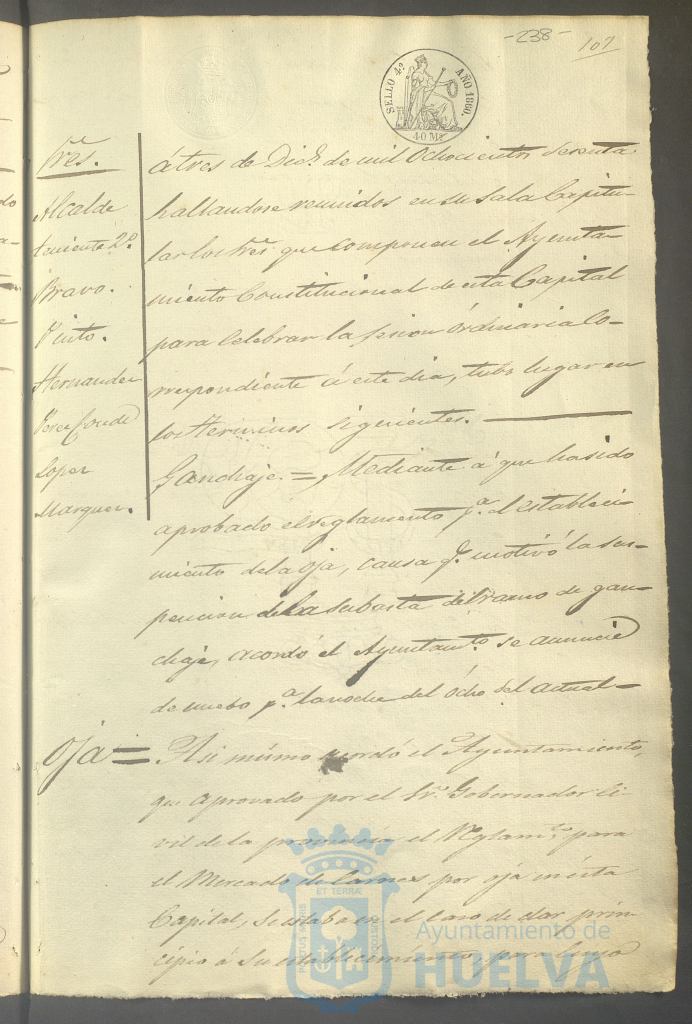 -238-
107
SELLO 4º AÑO 1860.
40 Ms
Sres.
Alcalde
teniente 2º.
Bravo.
Pinto.
Hernandez
Perez Conde
Lopez
Marquez.
a tres de Dice. de mil Ochocientos Sesenta
hallandose reunidos en su Sala Capitu-
lar los Sres. que componen el Ayunta-
miento Constitucional de esta Capital
para Celebrar la sesion Ordinaria Co-
rrespondiente á este dia, tubo lugar en
los terminos sigerientes.
Ganchaje. = Mediante á que ha sido
aprobado el reglamento pa. el estableci-
miento de la Oja, causa qe. motivó la sus-
pencion de la Subasta del ramo de gan-
chaje, acordó el Ayuntamto. se anuncie
de nuebo pa. la noche del Ocho del actual=
Oja =
Asi mismo acordó el Ayuntamiento,
que aprovado por el Sr. Gobernador Ci-
vil de la provincia el Reglamto. para
el Mercado de Carnes por oja en esta
Capital, se estaba en el Caso de dar prin-
cipio á su establecimiento, para cuyo
PORTUS MARIS
ET TERRAE
CUSTODIA
Ayuntamiento de
HUELVA